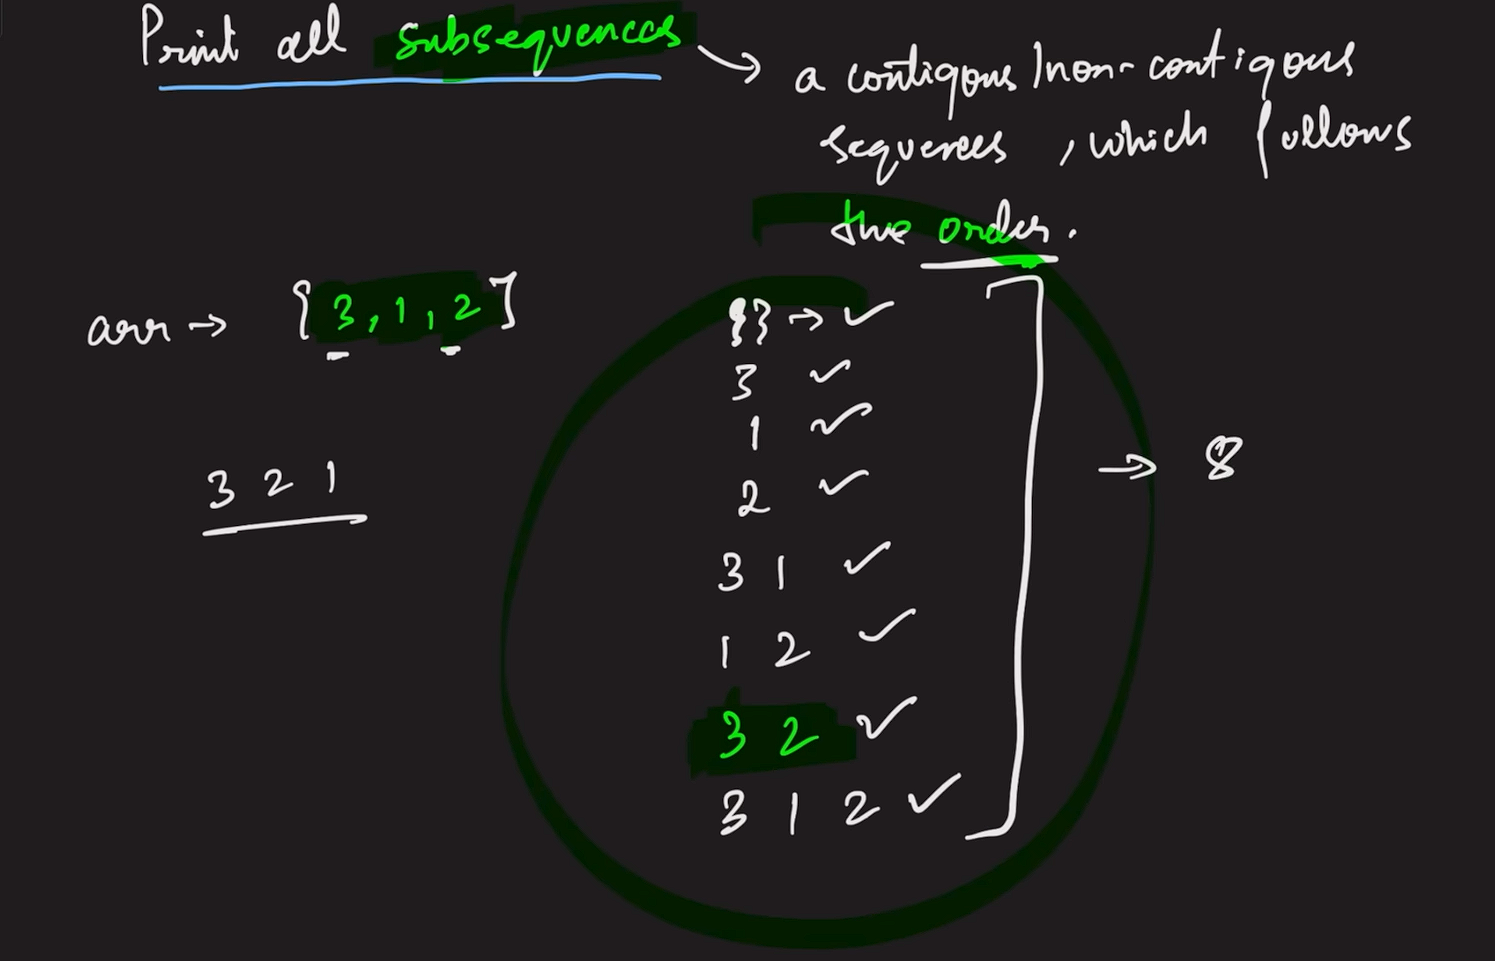 Print all subsequences → a contigous/non-contigous
sequences, which follows
the order.
arr → [3, 1, 2]
{} → ✓
3 ✓
1 ✓
2 ✓
3 1 ✓
1 2 ✓
3 2 ✓
3 1 2 ✓
→ 8
3 2 1